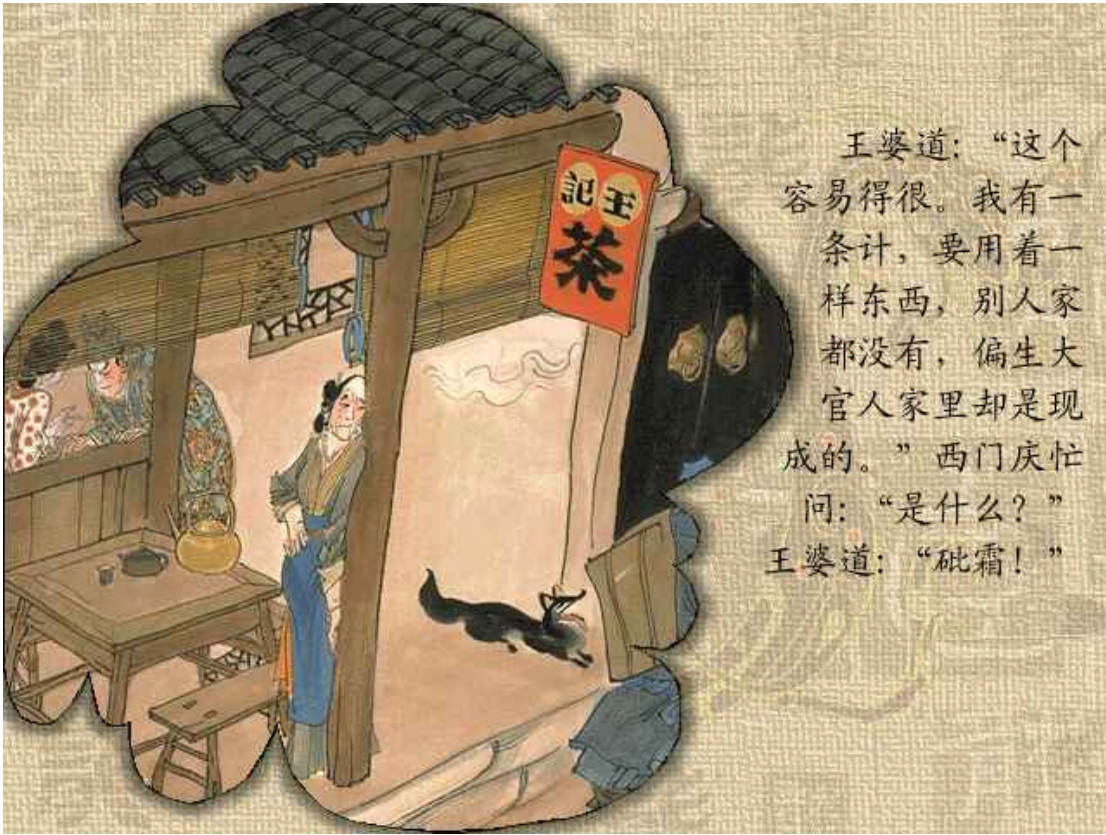 王記
茶
王婆道:“这个
容易得很。我有一
条计,要用着一
样东西,别人家
都没有,偏生大
官人家里却是现
成的。”西门庆忙
问:“是什么?”
王婆道:“砒霜!”